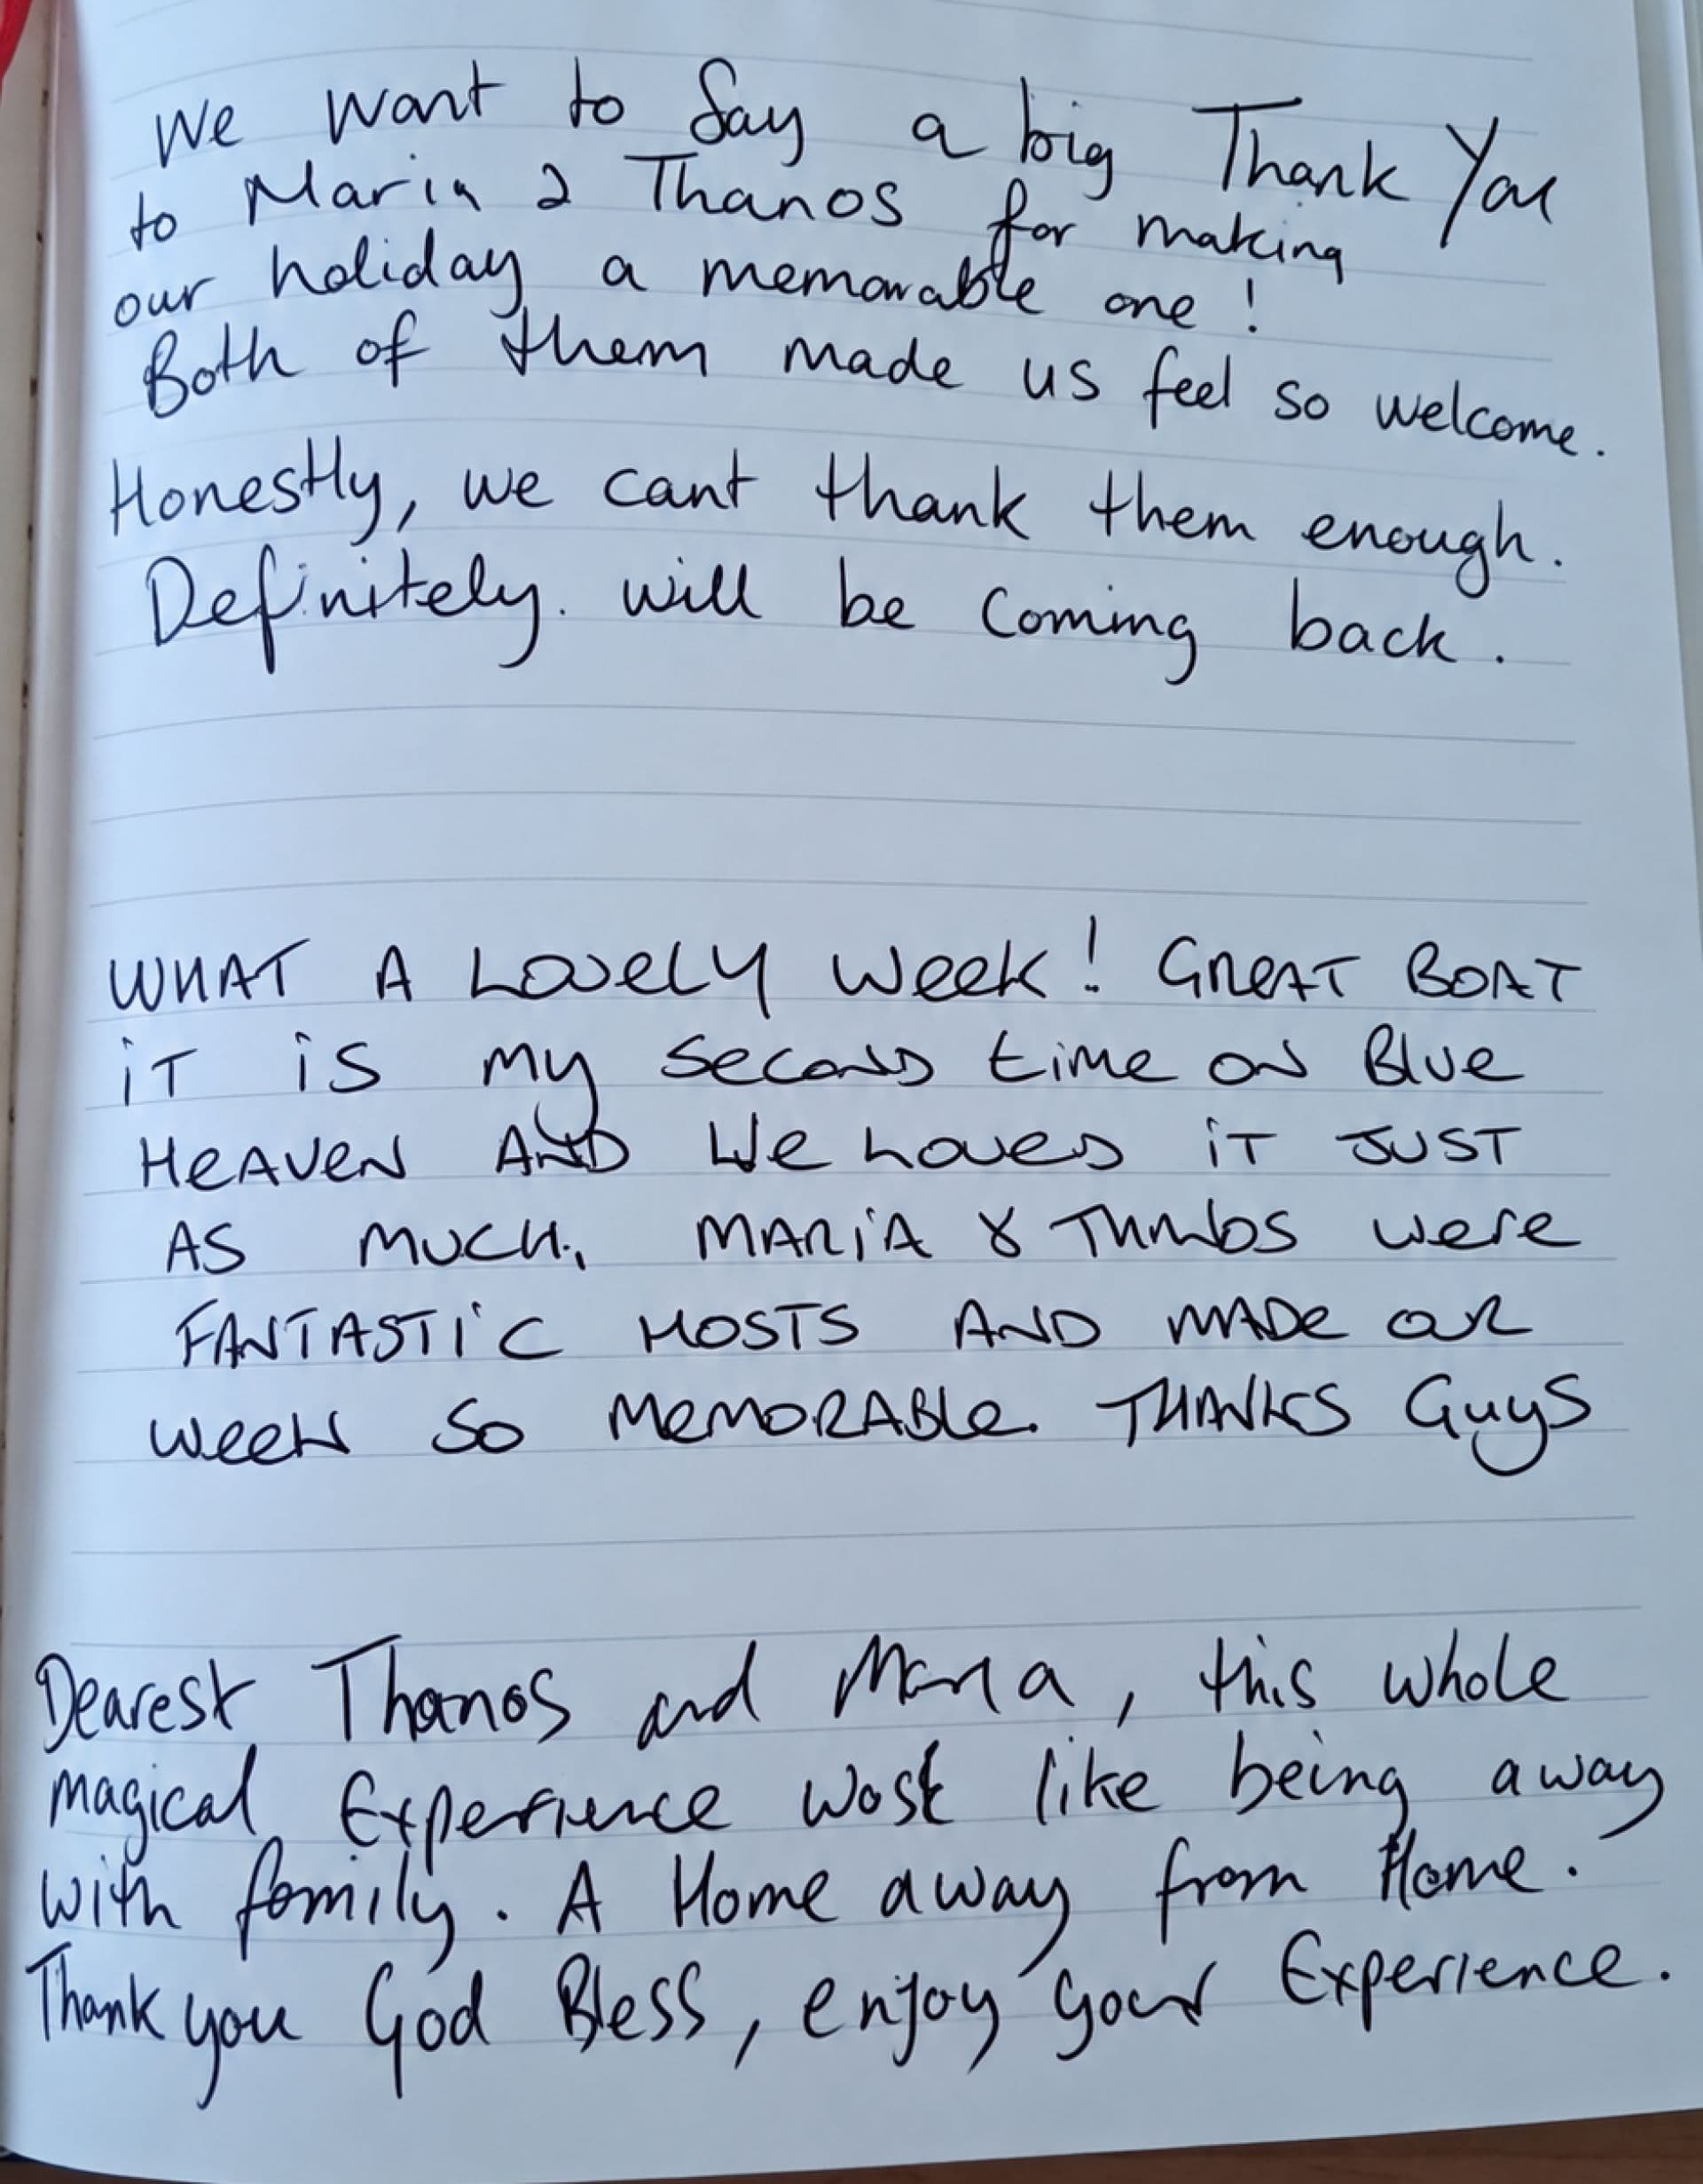 We want to Say a big Thank You
to Maria & Thanos for making
our holiday a memorable one!
Both of them made us feel so welcome.
Honestly, we cant thank them enough.
Definitely. will be Coming back.
WHAT A LOVELY WEEK! GREAT BOAT
iT iS MY SECOND time ON BLUE
HEAVEN AND WE LOVED iT JUST
AS MUCH. MARiA & THANOS were
FANTASTiC HOSTS AND MADE OUR
WEEK SO MEMORABLE. THANKS GUYS
Dearest Thanos and Maria, this whole
magical Experience was like being away
with family. A Home away from Home.
Thank you God Bless, enjoy your Experience.